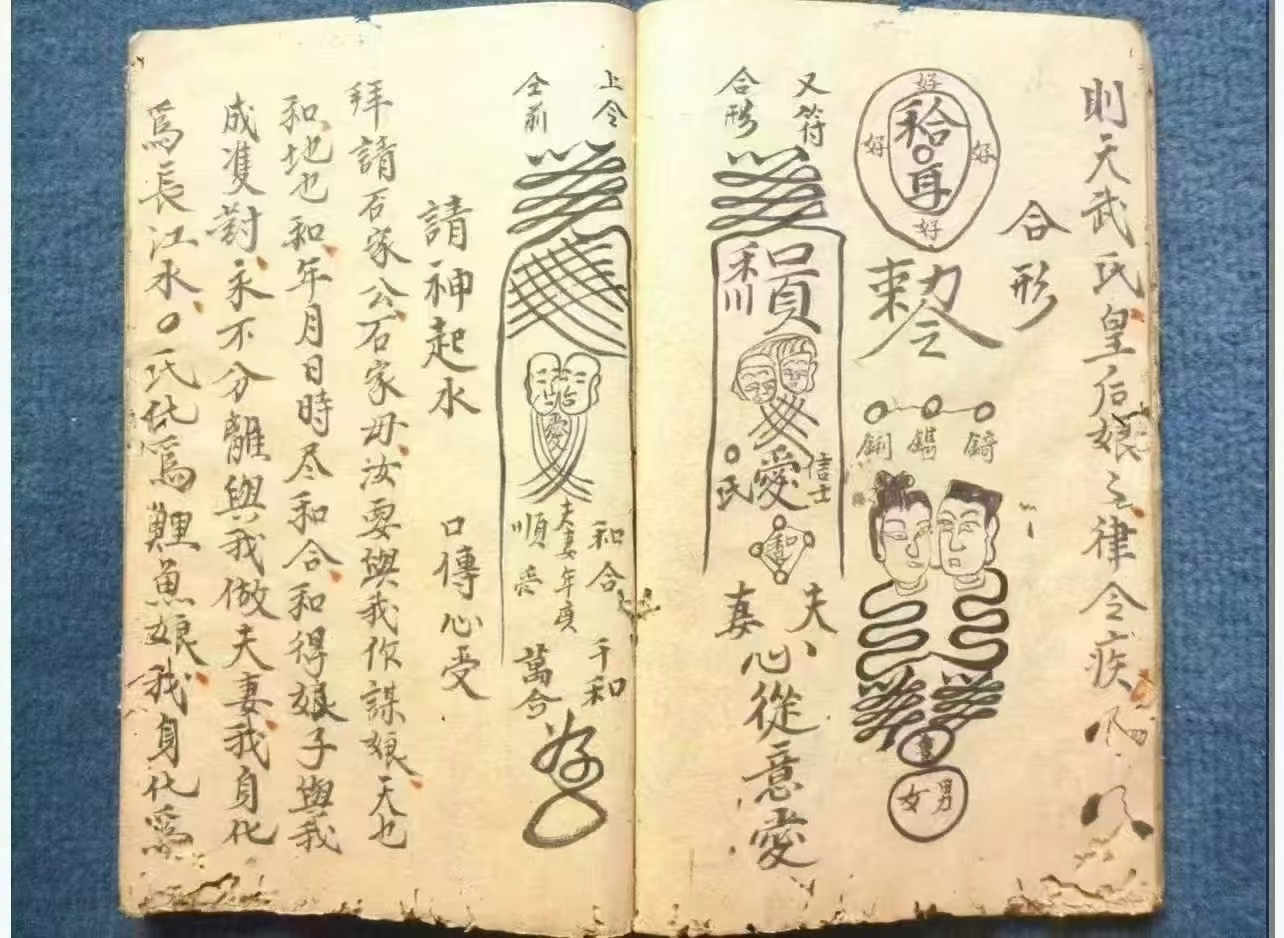 則天武氏皇后娘之律令疾
合形
好
好
好
好
敕令
女男
又符
合形
信士
愛
○氏
和
夫
妻
心從意愛
上令
全前
愛
和合
夫妻年庚
順
千和
萬合
請神起水 口傳心受
拜請石家公石家母汝要與我你謀娘天也
和地也和年月日時尽和合和得娘子與我
成雙對永不分離與我做夫妻我身化
為長江水○氏化為鯉魚娘我身化為